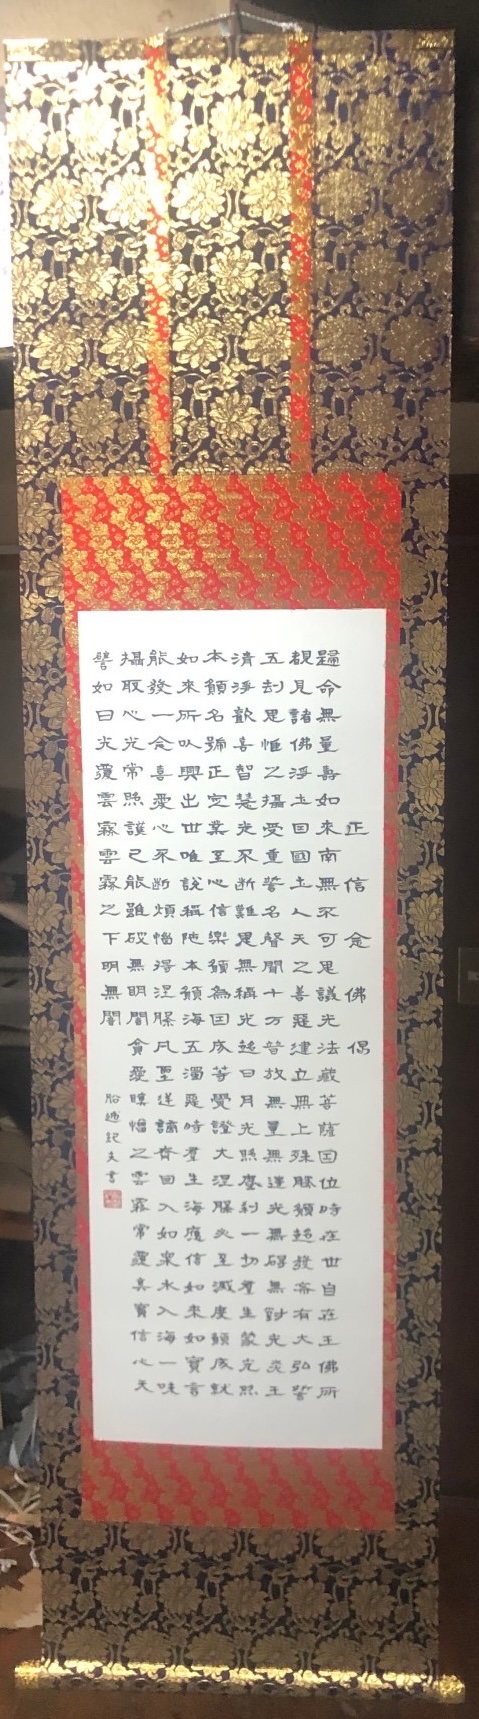 正信念佛偈
歸命無量壽如來南無不可思議光法藏菩薩因位時在世自在王佛所
覩見諸佛淨土因國土人天之善惡建立無上殊勝願超發希有大弘誓
五劫思惟之攝受重誓名聲聞十方普放無量無邊光無碍無對光炎王
清淨歡喜智慧光不斷難思無稱光超日月光照塵刹一切羣生蒙光照
本願名號正定業至心信樂願為因成等覺證大涅槃必至滅度願成就
如來所以興出世唯說彌陁本願海五濁惡時羣生海應信如來如實言
能發一念喜愛心不斷煩惱得涅槃凡聖逆謗齊回入如衆水入海一味
攝取心光常照護已能雖破無明闇貪愛瞋憎之雲霧常覆真實信心天
譬如日光覆雲霧雲霧之下明無闇
船越紀夫書